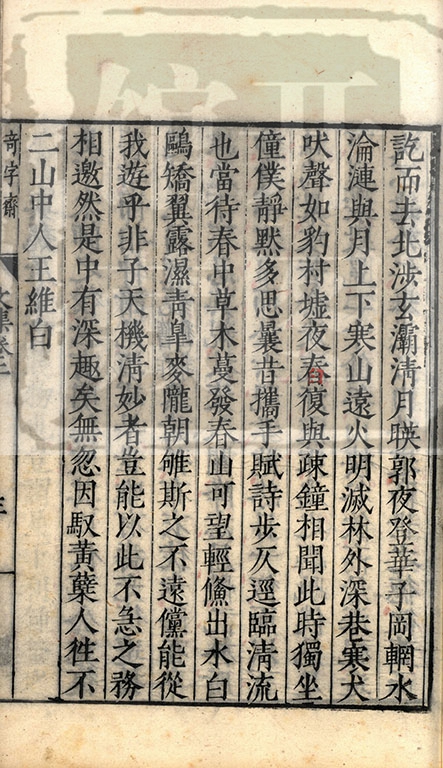 訖而去北涉玄灞清月暎郭夜登華子岡輞水
淪漣與月上下寒山遠火明滅林外深巷寒犬
吠聲如豹村墟夜舂復與疎鐘相聞此時獨坐
僮僕靜默多思曩昔攜手賦詩步仄逕臨清流
也當待春中草木蔓發春山可望輕鯈出水白
鷗矯翼露濕青皐麥隴朝雊斯之不遠儻能從
我遊乎非子天機清妙者豈能以此不急之務
相邀然是中有深趣矣無忽因馭黃蘗人徃不
二山中人王維白
奇字齋
文集卷二